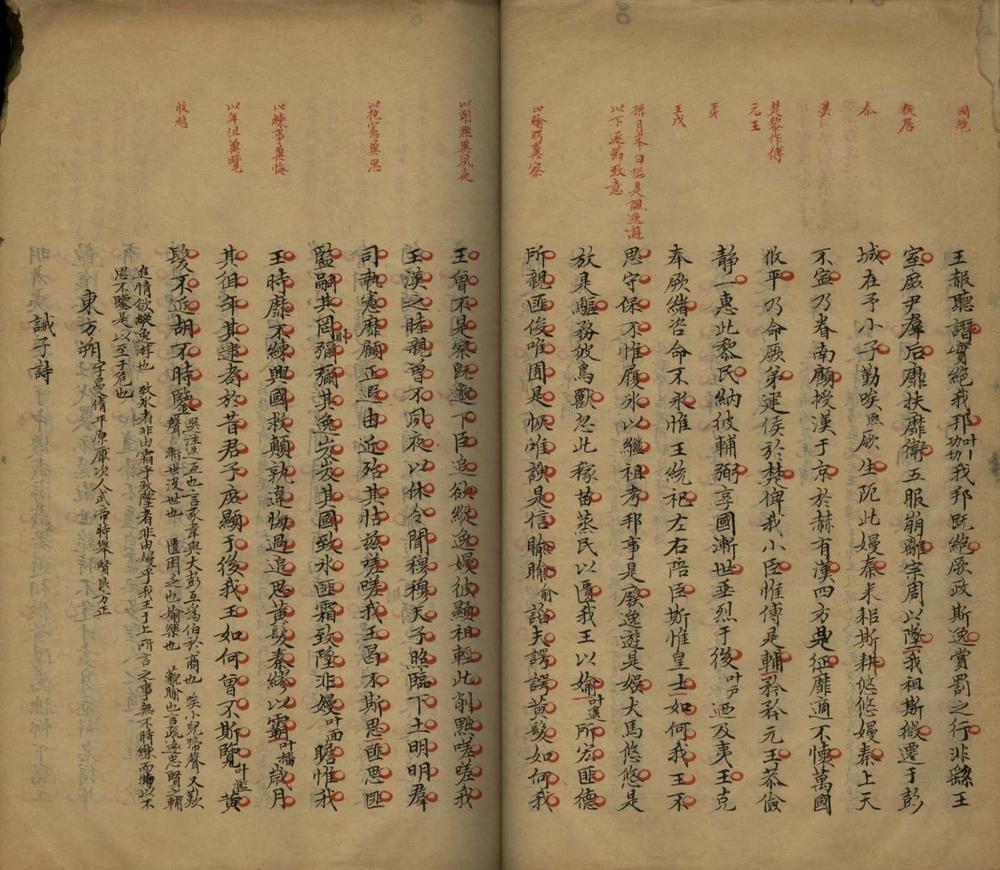 國絕
王赧聽譖寔絕我邦叶卜工切我邦既絕厥政斯逸賞罰之行非繇王
移居
室庶尹羣后靡扶靡衛五服崩離宗周以墜我祖斯微遷于彭
秦
城在予小子勤唉厥生阨此嫚秦耒耜斯耕悠悠嫚秦上天
漢
不寍乃眷南顧授漢于京於赫有漢四方是征靡適不懷萬國
楚黎作傅
元王
攸平乃命厥弟建侯於楚俾我小臣惟傅是輔矜矜元王恭儉
靜一惠此黎民納彼輔弼享國漸世垂烈于後叶戸迺及夷王克
王戊
奉厥緒咨命不永惟王統祀左右陪臣斯惟皇士如何我王不
以下逐節致意
思守保不惟履氷以繼祖考邦事是廢逸遊是娛犬馬悠悠是
放是驅務彼鳥獸忽此稼苗蒸民以匱我王以媮叶遙所宏匪德
以睮弼冀察
所親匪俊唯囿是恢唯諛是信睮睮俞諂夫諤諤黃髮如何我
王曾不是察既邈下臣追欲縱逸嫚彼顯祖輕此削黜嗟嗟我
以削黜冀夙夜
王漢之睦親曾不夙夜以休令聞穆穆天子照臨下土明明羣
以執憲冀思
司執憲靡顧正遐由近殆其怙茲嗟嗟我王曷不斯思匪思匪
監嗣其罔則彌彌其逸岌岌其國致氷匪霜致墜非嫚叶面瞻惟我
以練事冀悔
王時靡不練興國救顛孰違悔過追思黃髮秦繆以霸叶播歲月
以年徂冀覽
其徂年其逮耇於昔君子庶顯于後我王如何曾不斯覽叶濫黃
收結
髮不近胡不時鑒
東方朔字曼倩平原厭次人武帝時舉賢良方正
誡子詩